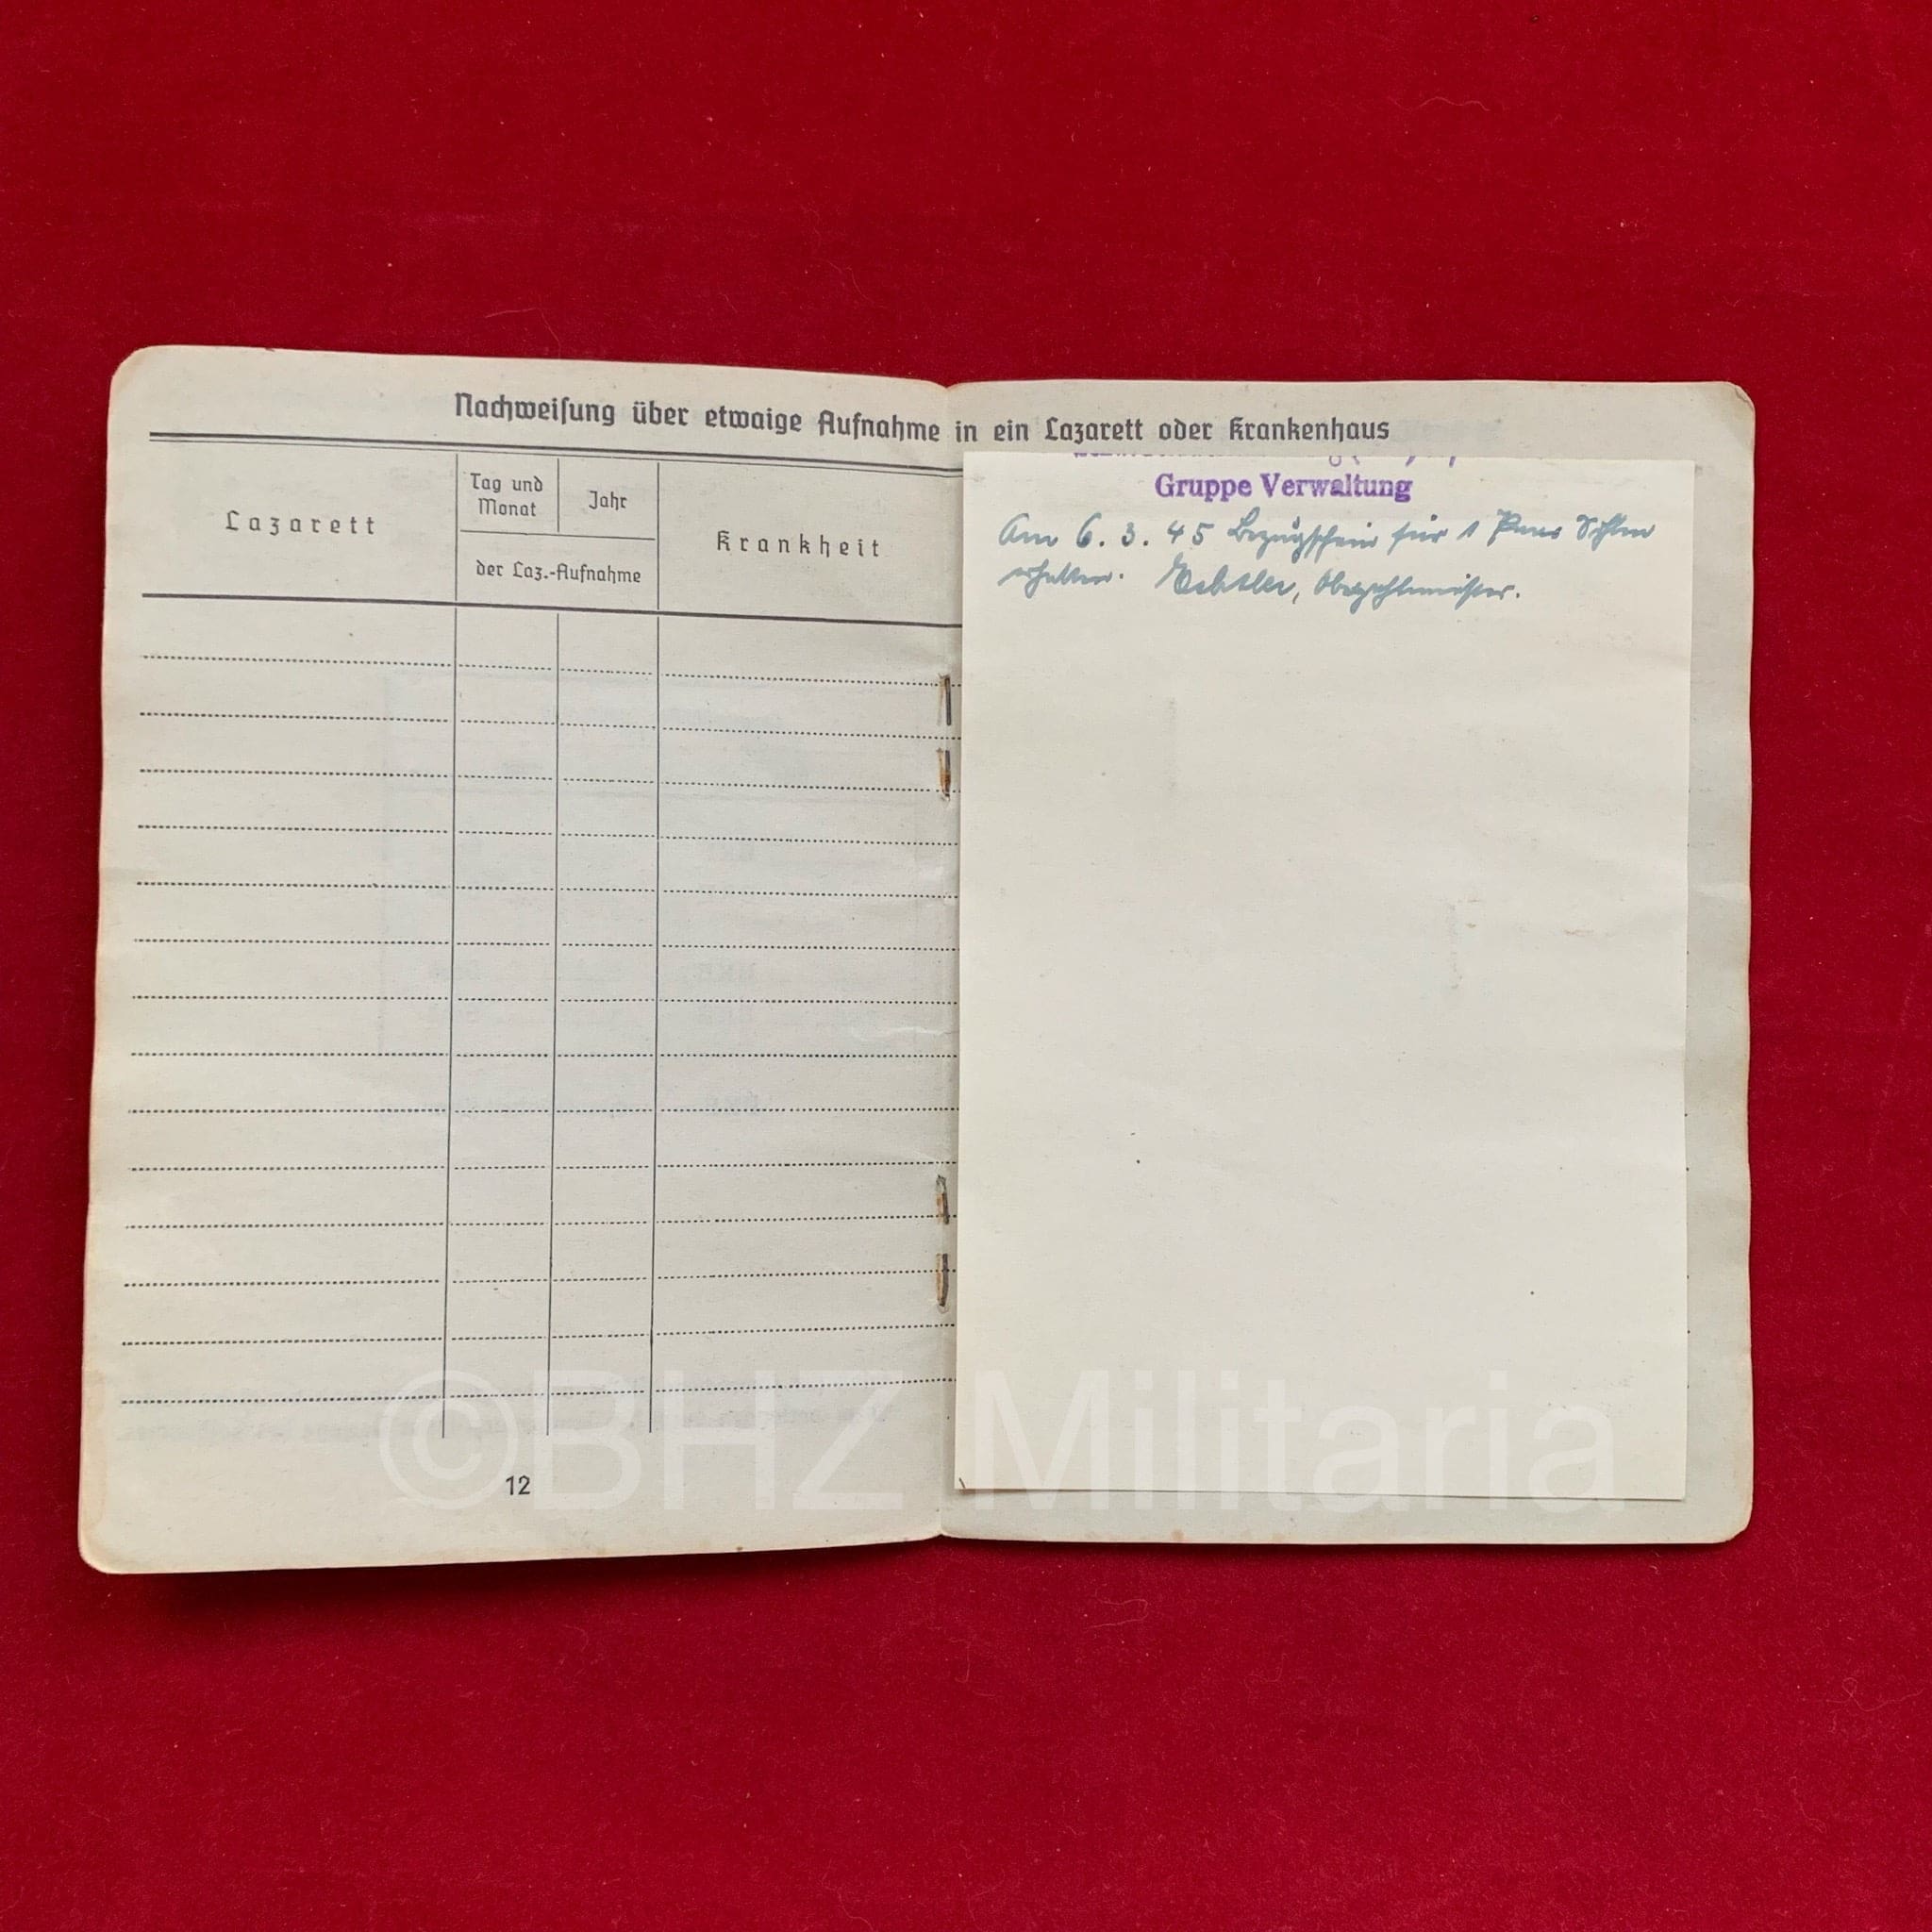 Nachweisung über etwaige Aufnahme in ein Lazarett oder Krankenhaus
Lazarett
Tag und Monat
Jahr
der Laz.-Aufnahme
Krankheit
Gruppe Verwaltung
Am 6. 3. 45 Bezugschein für 1 Paar Sohlen
erhalten. Oberzahlmeister.
12
©BHZ Militaria